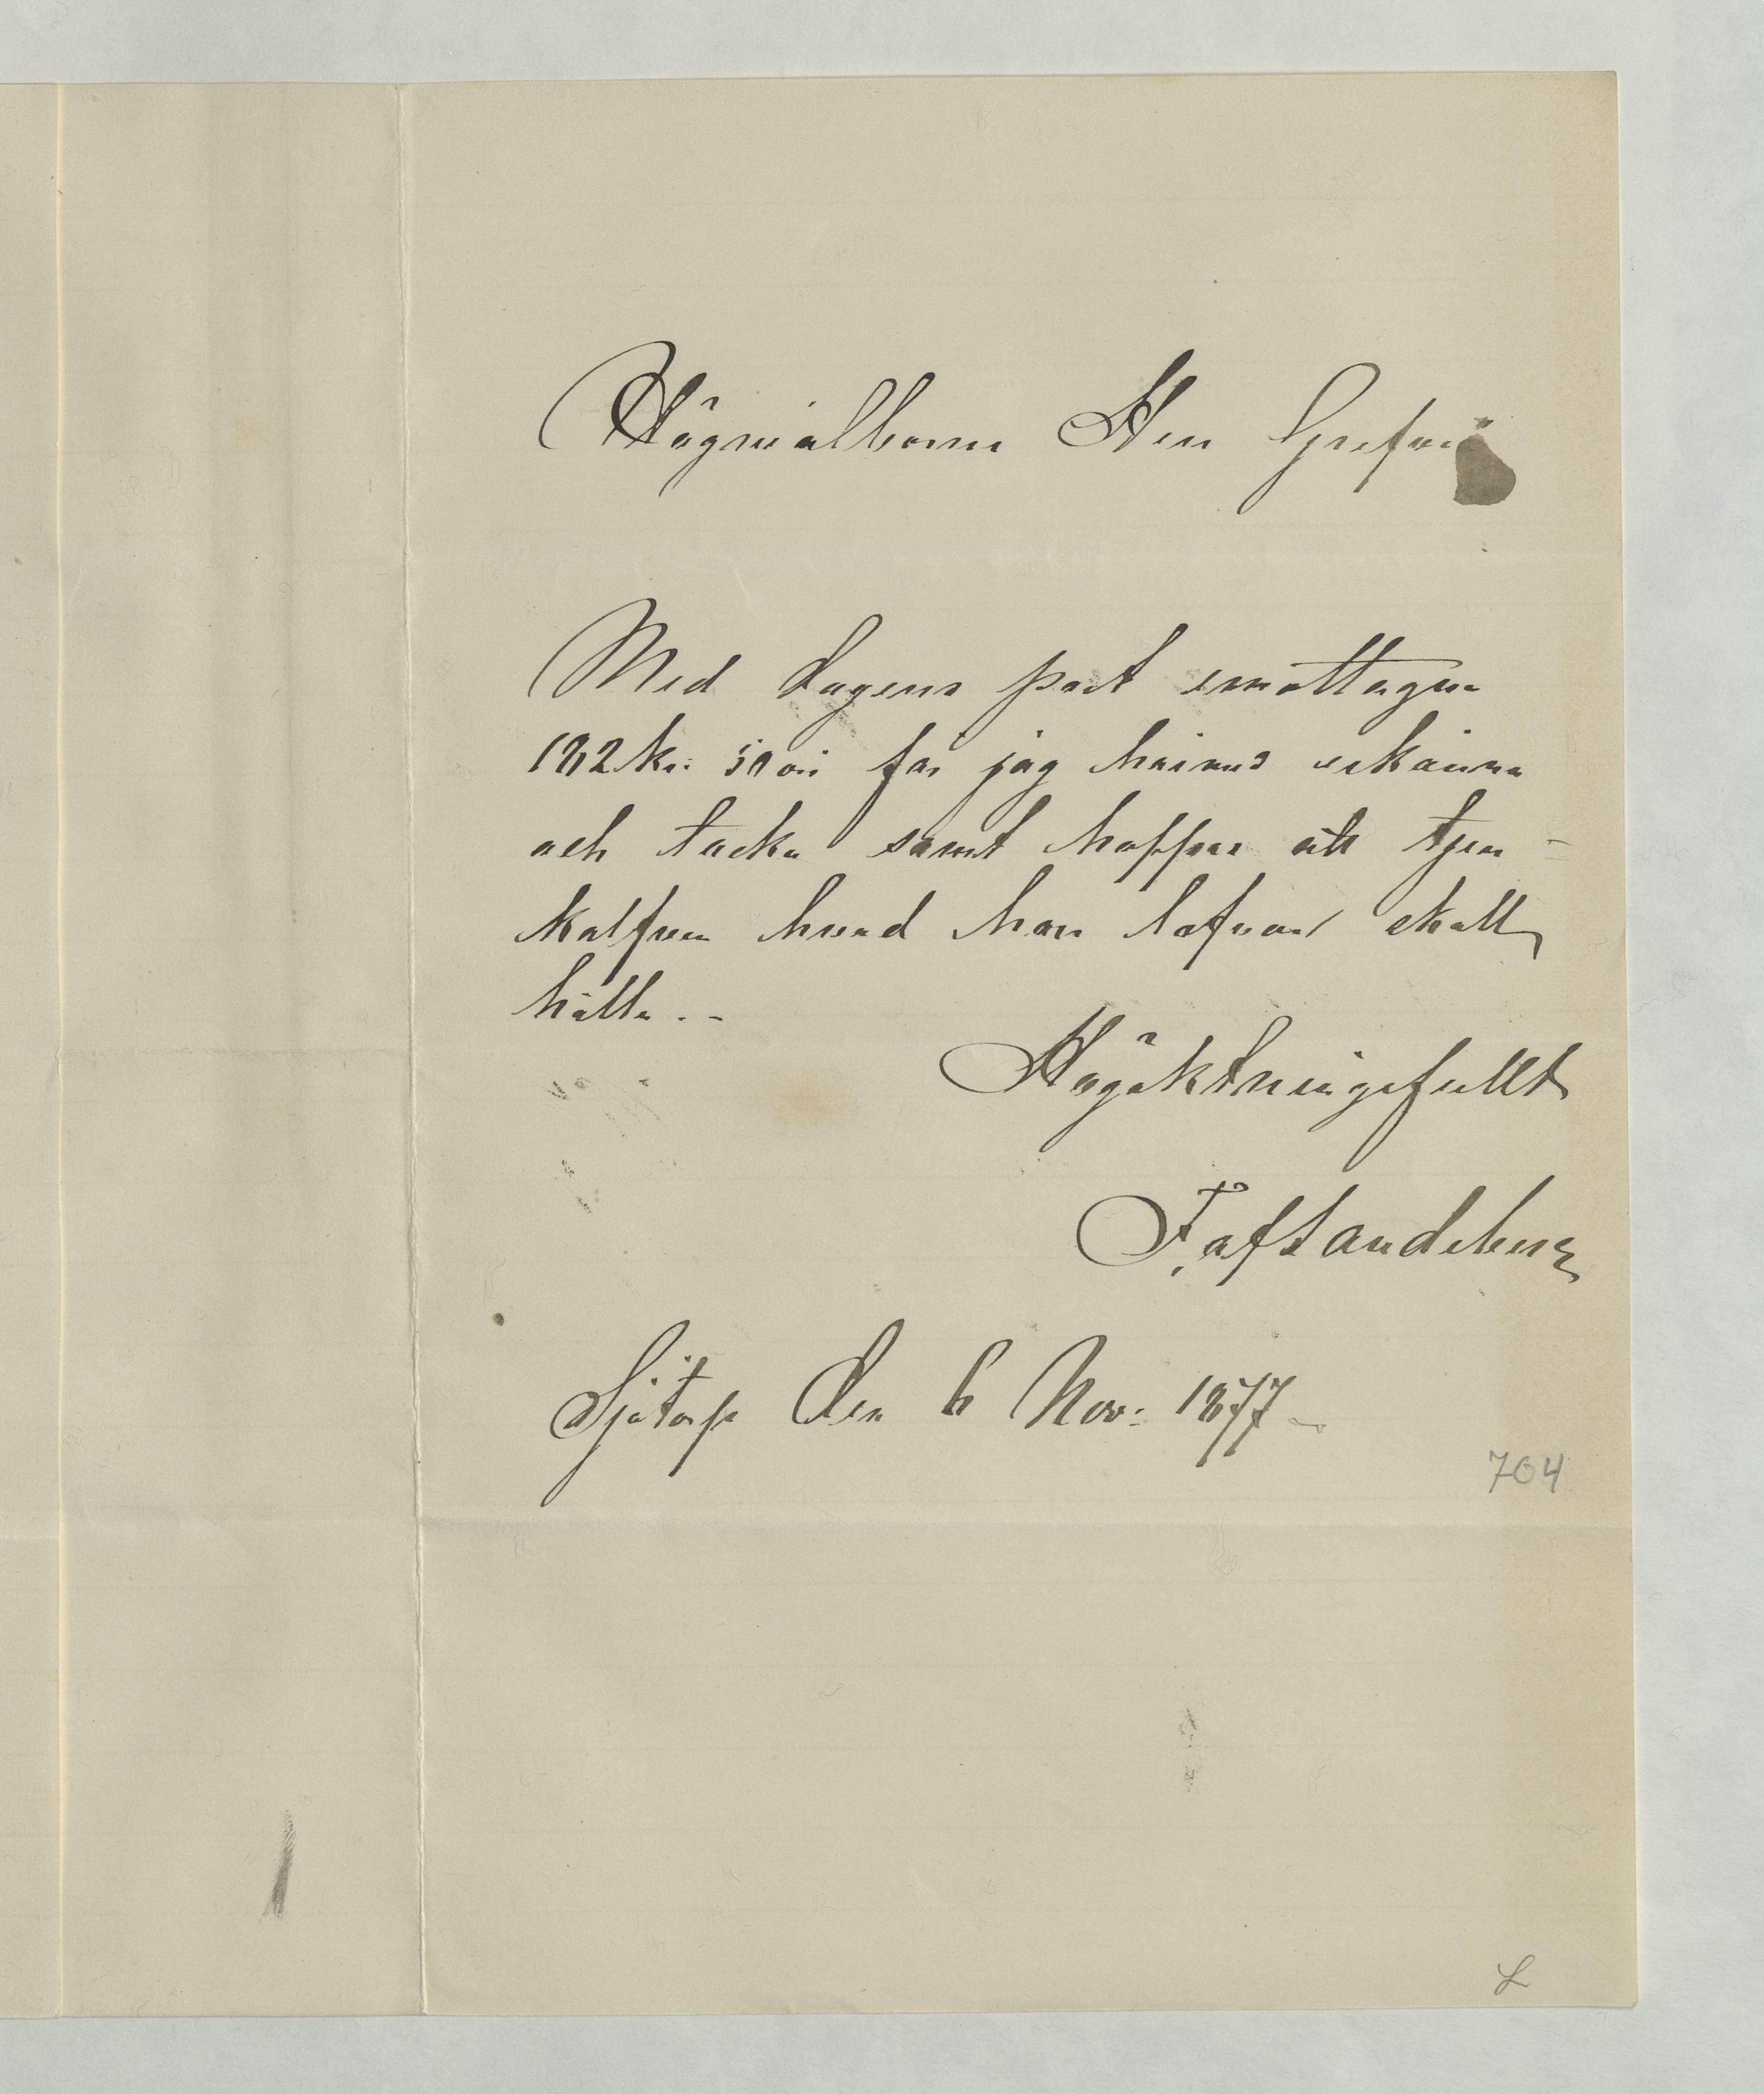 Högvälborne Herr Grefve
Med dagens post emottagna
182 kr: 50 öre får jag härmed erkänna
och tacka samt hoppas att tjur-
kalfven hvad han lofvar skall
hålla. -
Högaktningsfullt
F. af Sandeberg
Sjötorp den 6 Nov: 1877
704
L